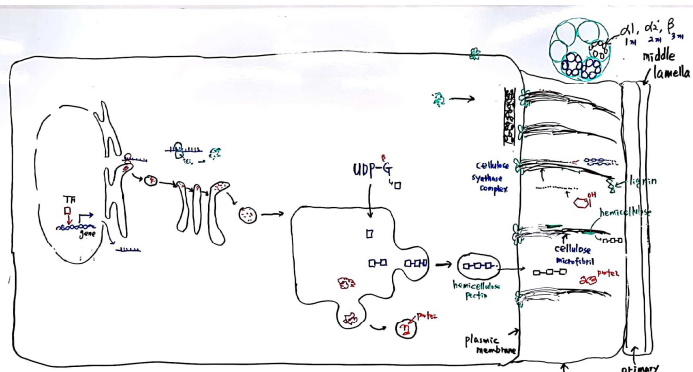 α1, α2, β
middle
lamella
TF
gene
UDP-G
cellulose
synthase
complex
lignin
OH
hemicellulose
cellulose
microfibril
hemicellulose
pectin
plasmic
membrane
primary